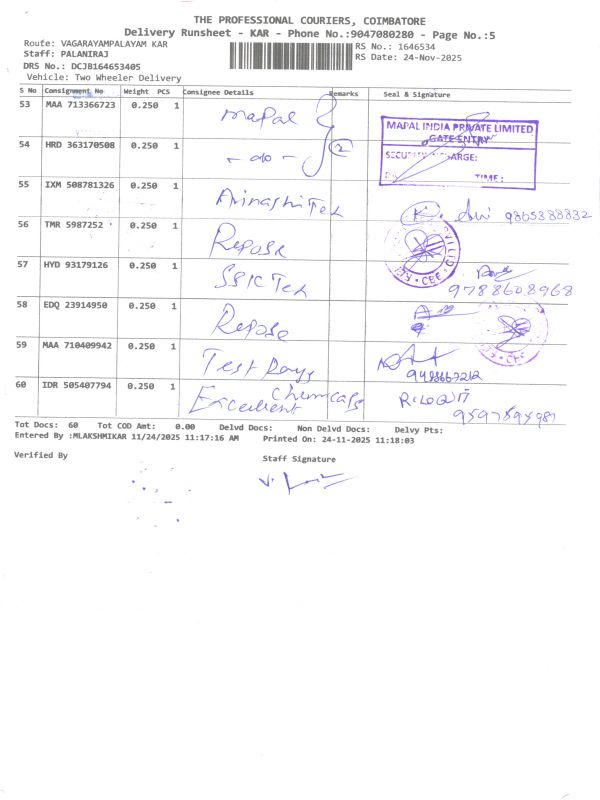 THE PROFESSIONAL COURIERS, COIMBATORE
Delivery Runsheet - KAR - Phone No.:9047080280 - Page No.:5
Route: VAGARAYAMPALAYAM KAR
RS No.: 1646534
Staff: PALANIRAJ
RS Date: 24-Nov-2025
DRS No.: DCJB164653405
Vehicle: Two Wheeler Delivery
S No Consignment No Weight PCS Consignee Details Remarks Seal & Signature
53 MAA 713366723 0.250 1 Mapal
MAPAL INDIA PRIVATE LIMITED
GATE ENTRY
54 HRD 363170508 0.250 1 - do - 2
TIME :
55 IXM 508781326 0.250 1 AvinashiTex 9865388832
56 TMR 5987252 0.250 1 Repose
CBE
57 HYD 93179126 0.250 1 SSIC Tex
9788608968
58 EDQ 23914950 0.250 1 Repose
59 MAA 710409942 0.250 1 Test Days
60 IDR 505407794 0.250 1 Excellent Chemicals
9597595987
Tot Docs: 60 Tot COD Amt: 0.00 Delvd Docs: Non Delvd Docs: Delvy Pts:
Entered By :MLAKSHMIKAR 11/24/2025 11:17:16 AM Printed On: 24-11-2025 11:18:03
Verified By
Staff Signature